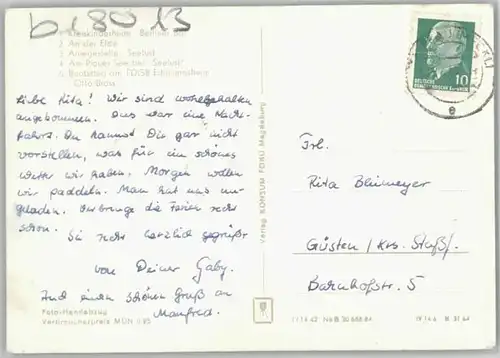 b180 13
1 Kleinkinderheim
2 An der Elde
3 Anlegestelle "Seelust"
4 Am Plauer See bei "Seelust"
5 Badesteg am FDGB-Erholungsheim
Otto Bross
Liebe Rita! Wir sind wohlbehalten
angekommen. Das war eine Nacht-
fahrt. Du kannst Dir gar nicht
vorstellen, was für ein schönes
Wetter wir haben. Morgen wollen
wir paddeln. Man hat uns ein-
geladen. Verbringe die Ferien recht
schön.
Sei recht herzlich gegrüßt
von Deiner Gaby.
Und einen schönen Gruß an
Manfred.
Foto-Handabzug
Verbraucherpreis MDN 0,95
Verlag KONSUM FOKU Magdeburg
DEUTSCHE DEMOKRATISCHE REPUBLIK
10
e
Frl.
Rita Blümeyer
Güsten / Krs. Staßf.
Bahnhofstr. 5